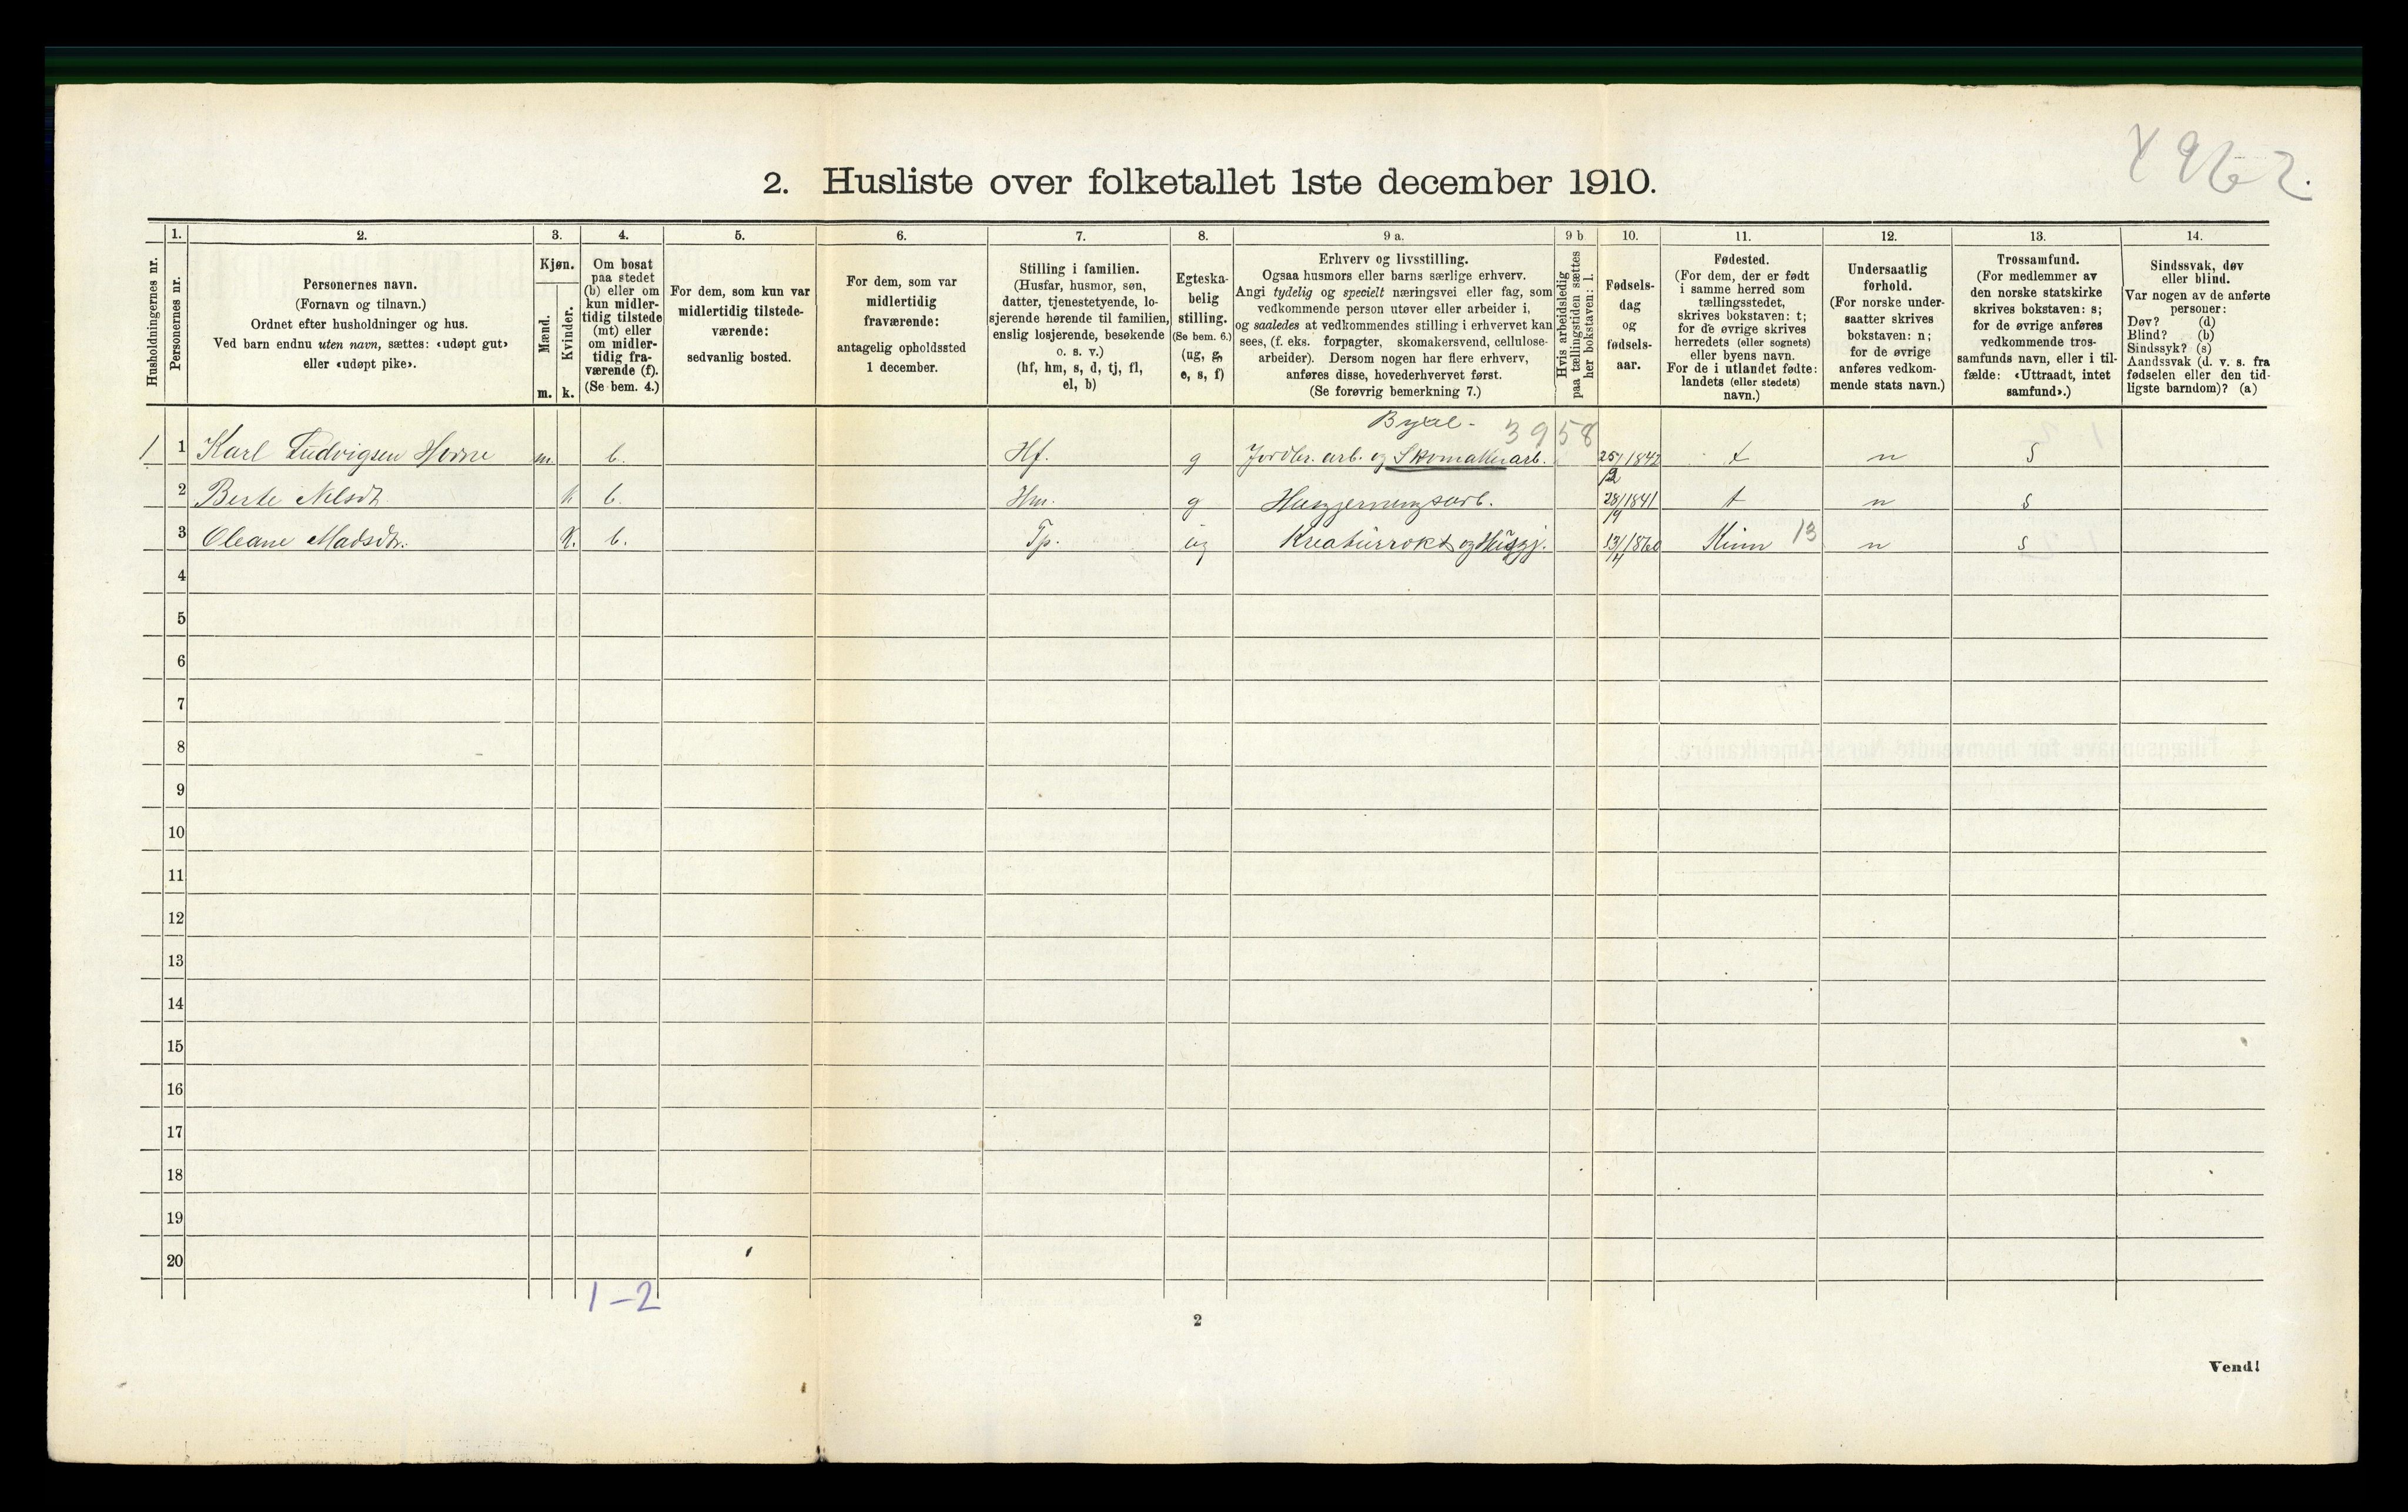 4962.
2. Husliste over folketallet 1ste december 1910.
1. 2. 3. 4. 5. 6. 7. 8. 9 a. 9 b 10. 11. 12. 13. 14.
Husholdningernes nr.
Personernes nr.
Personernes navn.
(Fornavn og tilnavn.)
Ordnet efter husholdninger og hus.
Ved barn endnu uten navn, sættes: «udøpt gut»
eller «udøpt pike».
Kjøn.
Mænd.
m.
Kvinder.
k.
Om bosat
paa stedet
(b) eller om
kun midler-
tidig tilstede
(mt) eller
om midler-
tidig fra-
værende (f).
(Se bem. 4.)
For dem, som kun var
midlertidig tilstede-
værende:
sedvanlig bosted.
For dem, som var
midlertidig
fraværende:
antagelig opholdssted
1 december.
Stilling i familien.
(Husfar, husmor, søn,
datter, tjenestetyende, lo-
sjerende hørende til familien,
enslig losjerende, besøkende
o. s. v.)
(hf, hm, s, d, tj, fl,
el, b)
Egteska-
belig
stilling.
(Se bem. 6.)
(ug, g,
e, s, f)
Erhverv og livsstilling.
Ogsaa husmors eller barns særlige erhverv.
Angi tydelig og specielt næringsvei eller fag, som
vedkommende person utøver eller arbeider i,
og saaledes at vedkommendes stilling i erhvervet kan
sees, (f. eks. forpagter, skomakersvend, cellulose-
arbeider). Dersom nogen har flere erhverv,
anføres disse, hovederhvervet først.
(Se forøvrig bemerkning 7.)
Hvis arbeidsledig
paa tællingstiden sættes
her bokstaven: l.
Fødsels-
dag
og
fødsels-
aar.
Fødested.
(For dem, der er født
i samme herred som
tællingsstedet,
skrives bokstaven: t;
for de øvrige skrives
herredets (eller sognets)
eller byens navn.
For de i utlandet fødte:
landets (eller stedets)
navn.)
Undersaatlig
forhold.
(For norske under-
saatter skrives
bokstaven: n;
for de øvrige
anføres vedkom-
mende stats navn.)
Trossamfund.
(For medlemmer av
den norske statskirke
skrives bokstaven: s;
for de øvrige anføres
vedkommende tros-
samfunds navn, eller i til-
fælde: «Uttraadt, intet
samfund».)
Sindssvak, døv
eller blind.
Var nogen av de anførte
personer:
Døv? (d)
Blind? (b)
Sindssyk? (s)
Aandssvak (d. v. s. fra
fødselen eller den tid-
ligste barndom)? (a)
3958
1 1 Karl Ludvigsen m. b. Hf. g Jordbr. arb. og Skomakerarb. 25/2 1842 t n s
2 Berte Nilsdt. k b. Hm. g Husgjerningsarb. 28/9 1841 t n s
3 Oleane Madsdtr. k. b. Tp. ug Kreaturrøkt og Husgj. 13/4 1860 Kinn 13 n s
4
5
6
7
8
9
10
11
12
13
14
15
16
17
18
19
20
1-2
2
Vend!